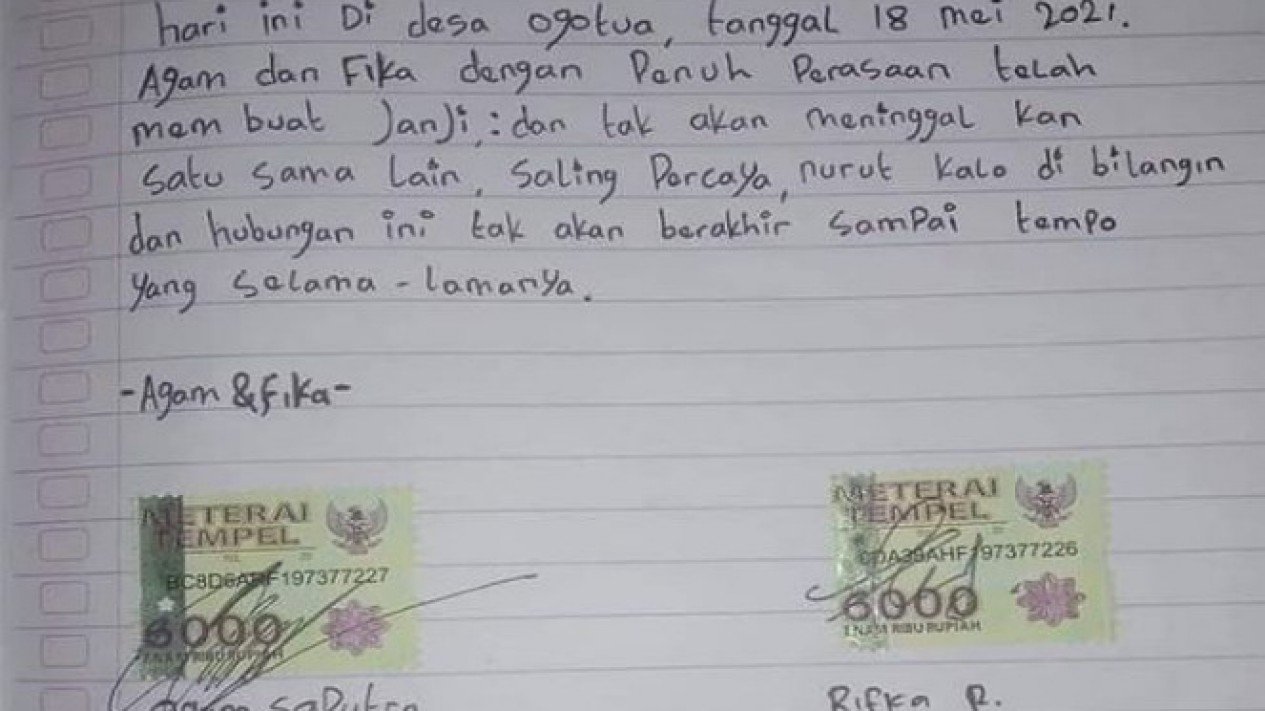 hari ini Di desa ogotua, tanggal 18 mei 2021.
Agam dan Fika dengan Penuh Perasaan telah
mem buat JanJi,: dan tak akan meninggal kan
satu sama lain, Saling Percaya, nurut kalo di bilangin
dan hubungan ini tak akan berakhir samPai tempo
yang selama - lamanya.
- Agam & Fika -
METERAI
TEMPEL
197377227
6000
ENAM RIBU RUPIAH
METERAI
TEMPEL
197377226
6000
ENAM RIBU RUPIAH
SaPutra
Rifka R.